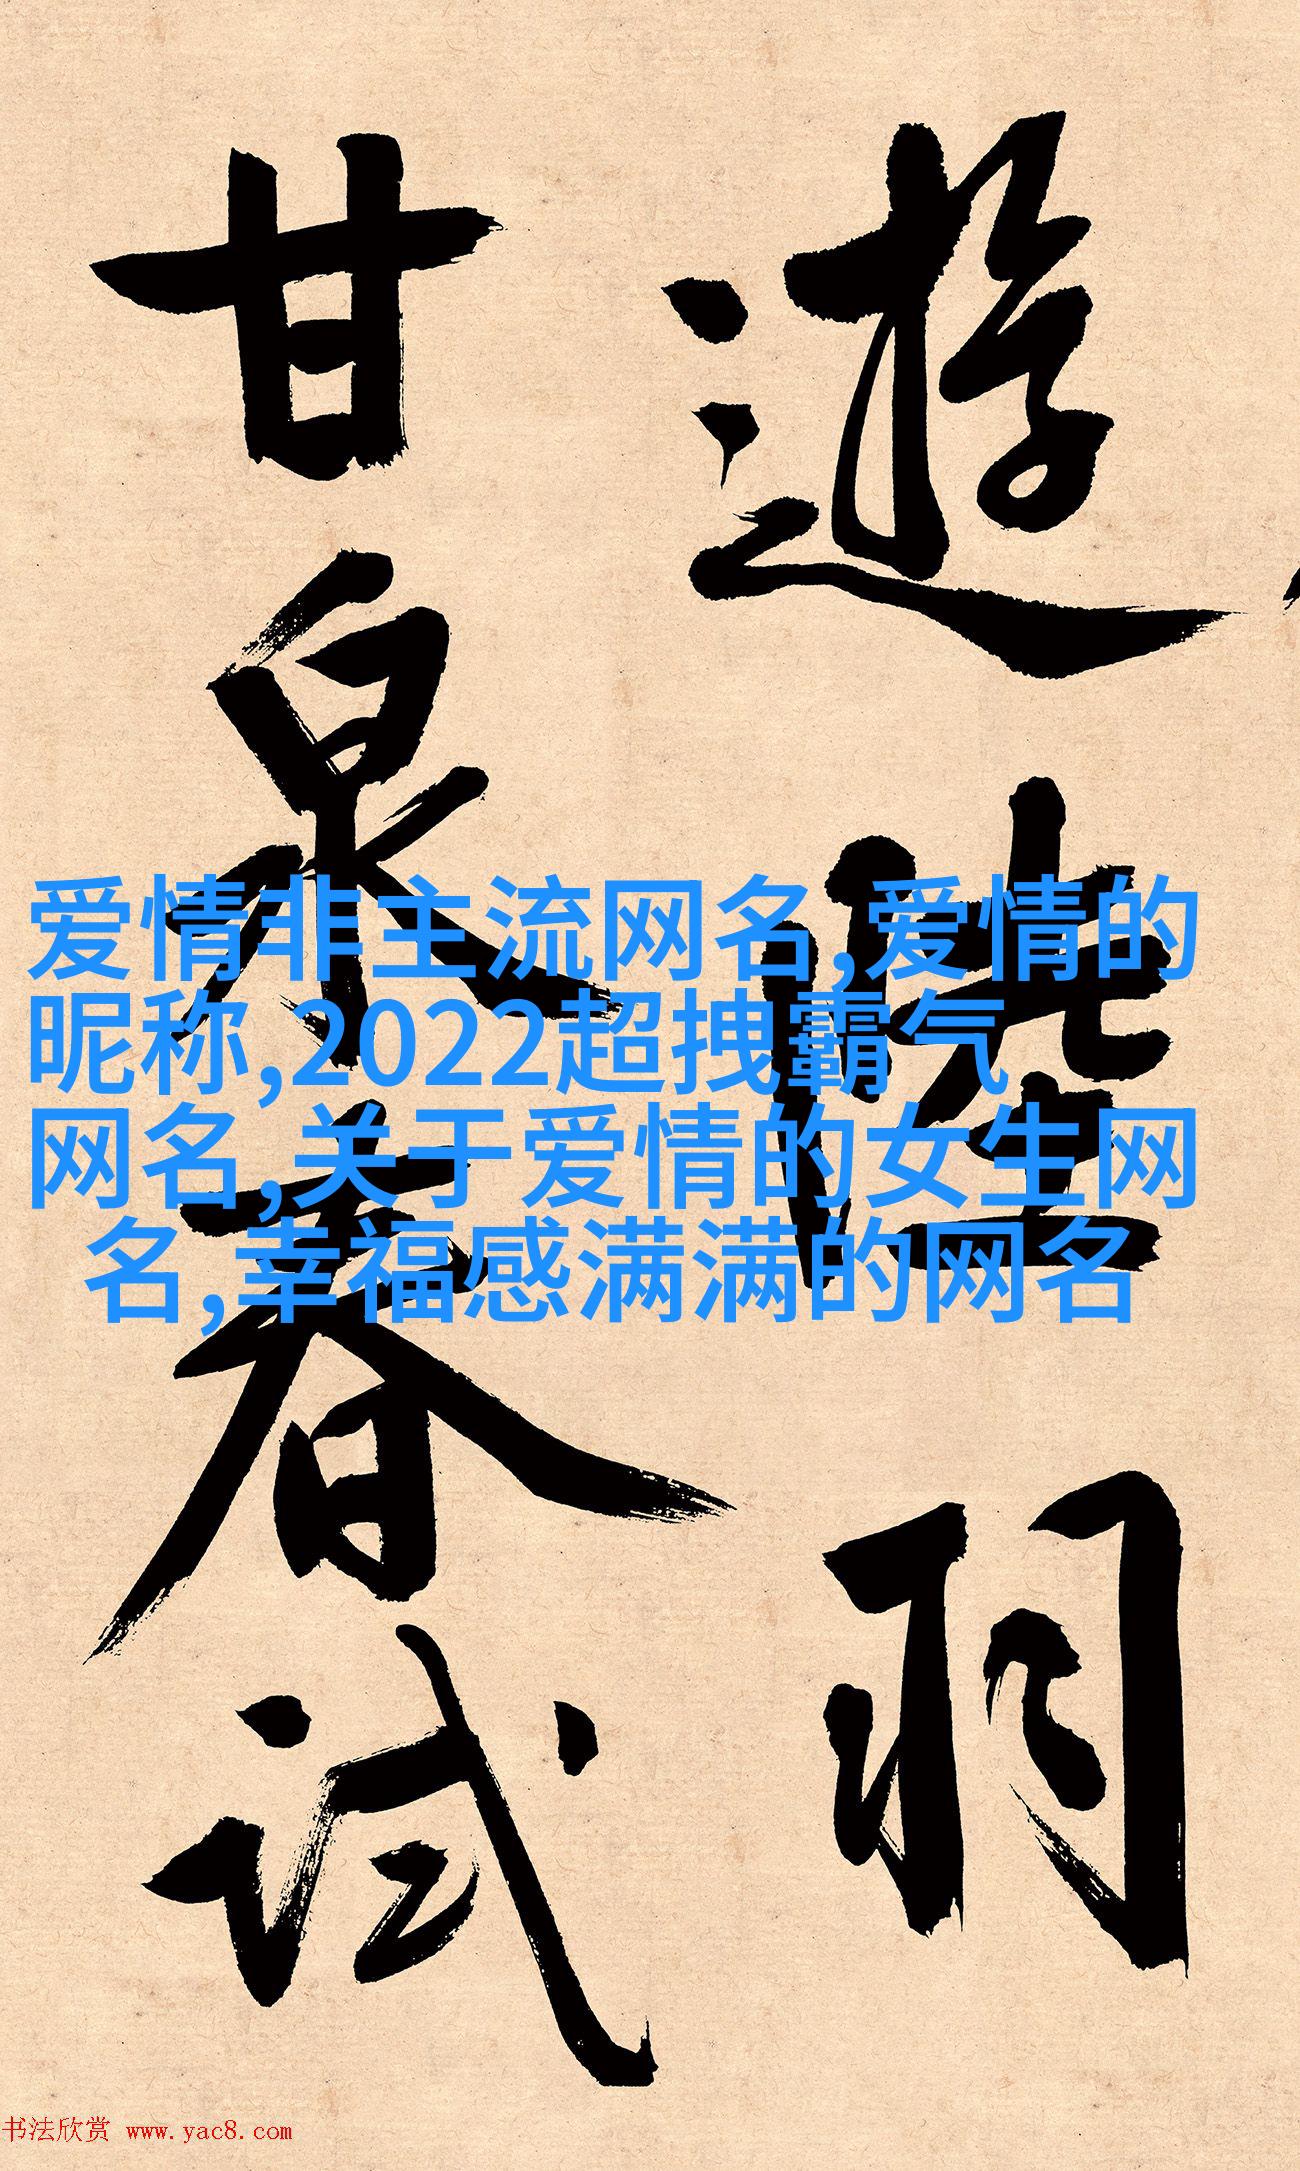 遊陸羽
甘泉春试
爱情非主流网名,爱情的
昵称,2022超拽霸气
网名,关于爱情的女生网
名,幸福感满满的网名
书法欣赏 www.yac8.com